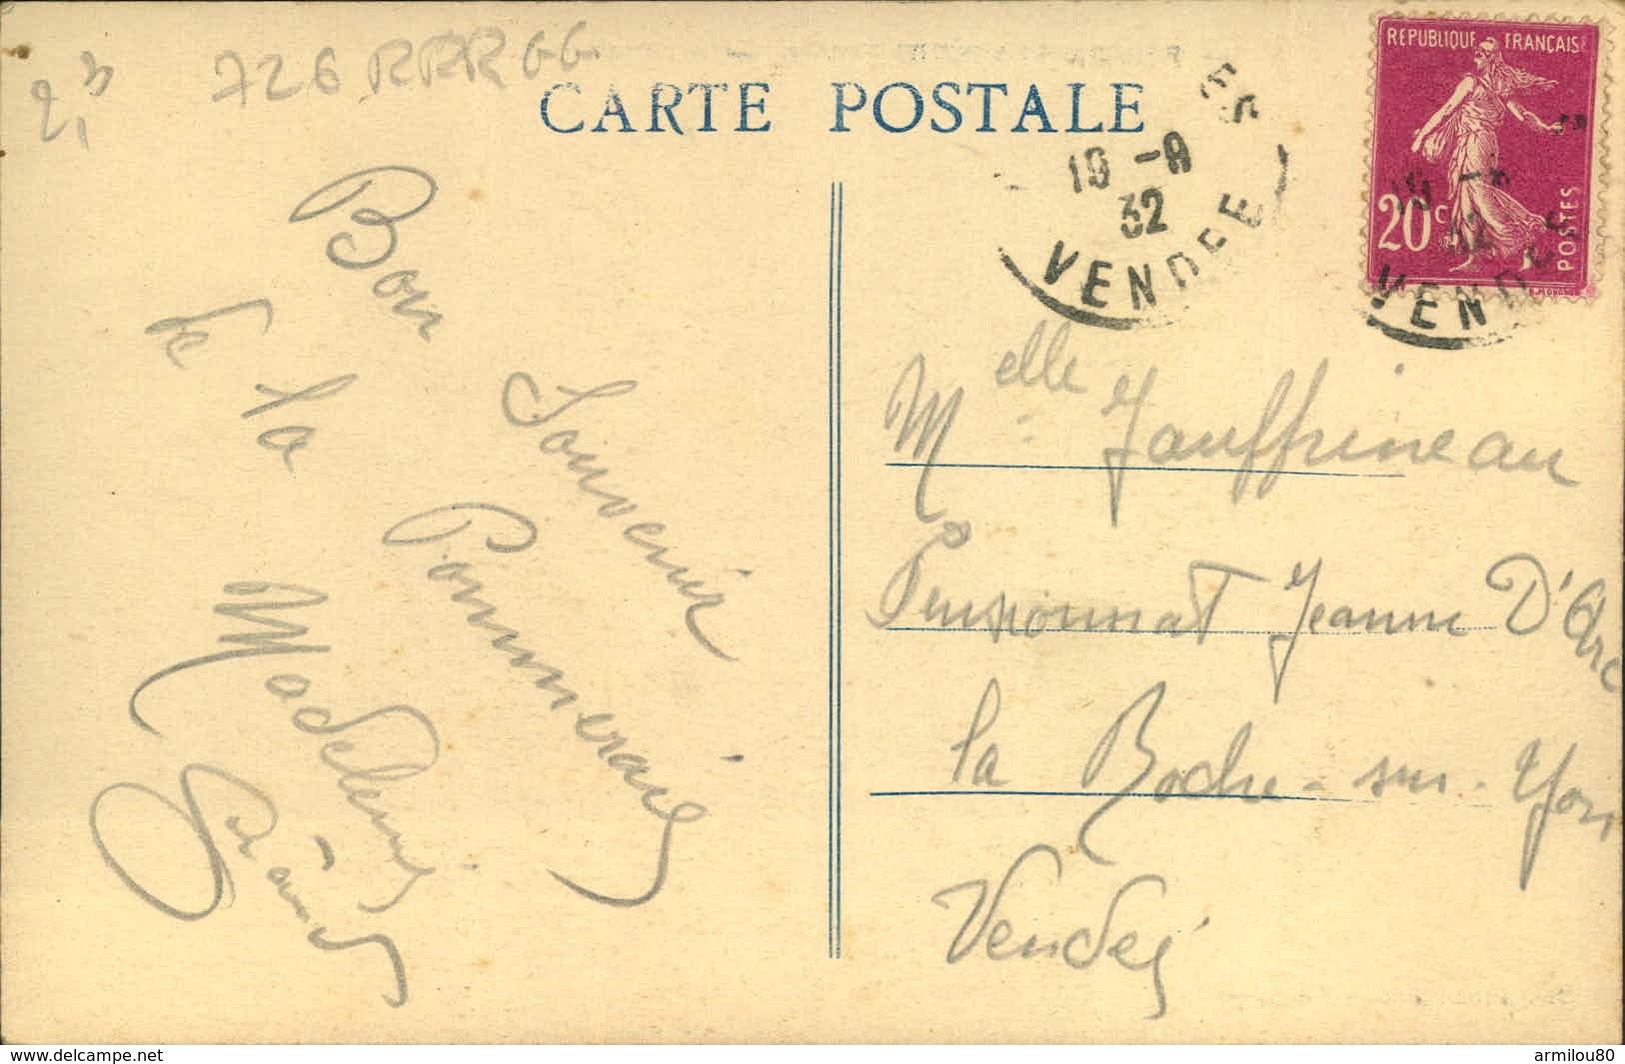 2,3
726 RRR GG
CARTE POSTALE
REPUBLIQUE FRANÇAISE
20c
POSTES
ES
19 -8
32
VENDEE
32
VENDEE
Bon Souvenir
de la Pommeraie
Madeleine
Melle Jauffrineau
Pensionnat Jeanne D'Arc
la Roche-sur-Yon
Vendée
www.delcampe.net
armilou80